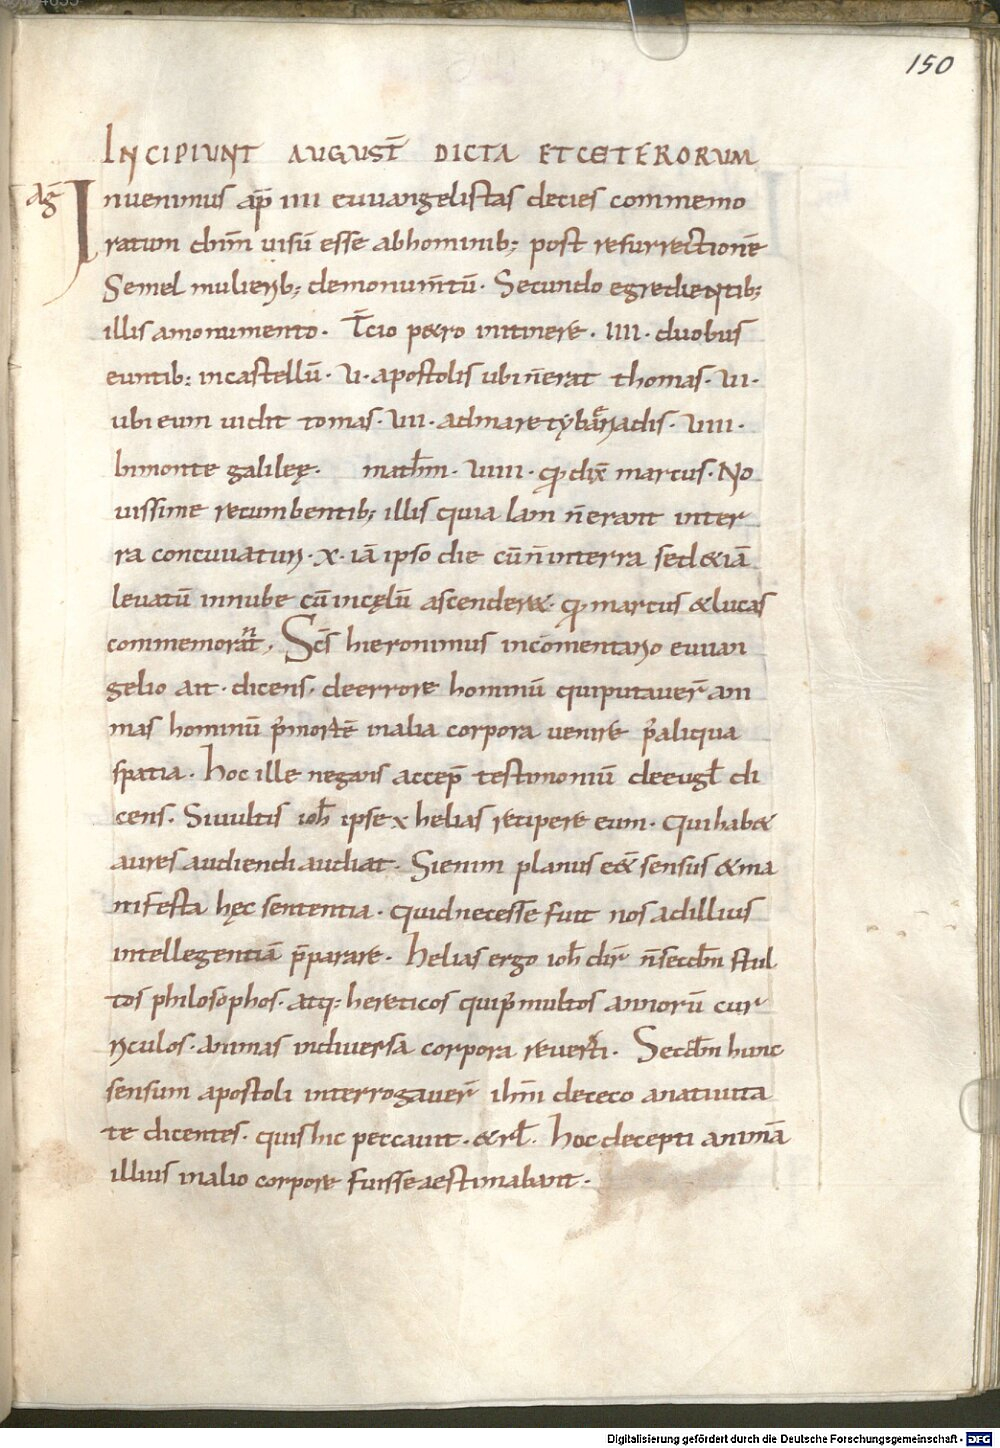 150
INCIPIUNT AUGUST̄ DICTA ET CETERORUM
AḠ Inuenimus ap̄ IIII euuangelistas decies commemo
ratum dn̄m uisū esse ab hominib; post resurrectionē
Semel mulierib; demonum̄tū. Secundo egredientib;
illis amonumento. T̄cio petro initinere. IIII. duobus
euntib; incastellū. V. apostolis ubi n̄ erat thomas. VI.
ubi eum uidit tomas. VII. admare tyberiadis. VIII.
Inmonte galileę. math̄m. VIIII. qđ dix̄ marcus. No
uissime recumbentib; illis quia Iam n̄ erant inter
ra conuuaturi. X. iā ipso die cū n̄ interra sed &iā
leuatū innube cū incęlū ascender&. qđ marcus & lucas
commemorant. Sc̄s hieronimus incōmentario euuan
gelio ait. dicens. deerrore hominū qui putauer̄ ani
mas hominū p̄ mortē inalia corpora uenire p̄ aliqua
spatia. hoc ille negans accep̄ testimoniū deeugł di
cens. Siuultis ioh̄ ipse x helias recipere eum. Qui hab&
aures audiendi audiat. Sienim planus e&̄ sensus & ma
nifesta hęc sententia. quid necesse fuit nos adillius
intellegentiā p̄parare. helias ergo ioh̄ dr̄ n̄ secdm̄ stul
tos philosophos. atq; hereticos qui p̄ multos annorū cur
riculos. animas indiuersa corpora reuerti. Secdm̄ hunc
sensum apostoli interrogauer̄ ih̄m dececo anatiuita
te dicentes. quis hic peccauit. & rł. hoc decepti animā
illius inalio corpore fuisse aestimabant.
Digitalisierung gefördert durch die Deutsche Forschungsgemeinschaft - DFG